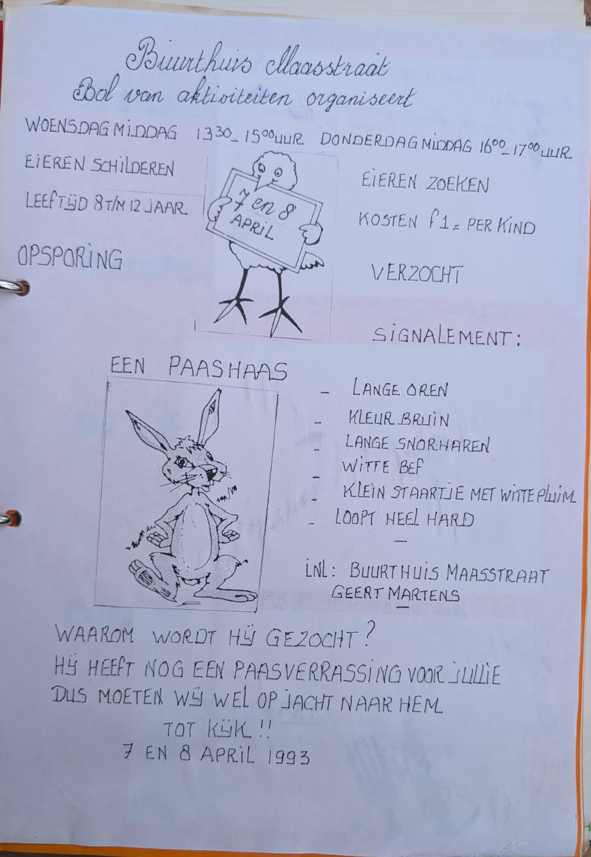 Buurthuis Maasstraat
Bol van aktiviteiten organiseert
WOENSDAGMIDDAG 13 30 - 15 00 UUR
EIEREN SCHILDEREN
LEEFTIJD 8 T/M 12 JAAR
DONDERDAGMIDDAG 16 00 - 17 00 UUR
EIEREN ZOEKEN
KOSTEN f 1 = PER KIND
7 en 8
APRIL
OPSPORING
VERZOCHT
SIGNALEMENT:
EEN PAASHAAS
- LANGE OREN
- KLEUR BRUIN
- LANGE SNORHAREN
- WITTE BEF
- KLEIN STAARTJE MET WITTE PLUIM
- LOOPT HEEL HARD
—
INL: BUURTHUIS MAASSTRAAT
GEERT MARTENS
—
WAAROM WORDT HIJ GEZOCHT?
HIJ HEEFT NOG EEN PAASVERRASSING VOOR JULLIE
DUS MOETEN WIJ WEL OP JACHT NAAR HEM
TOT KIJK!!
7 EN 8 APRIL 1993